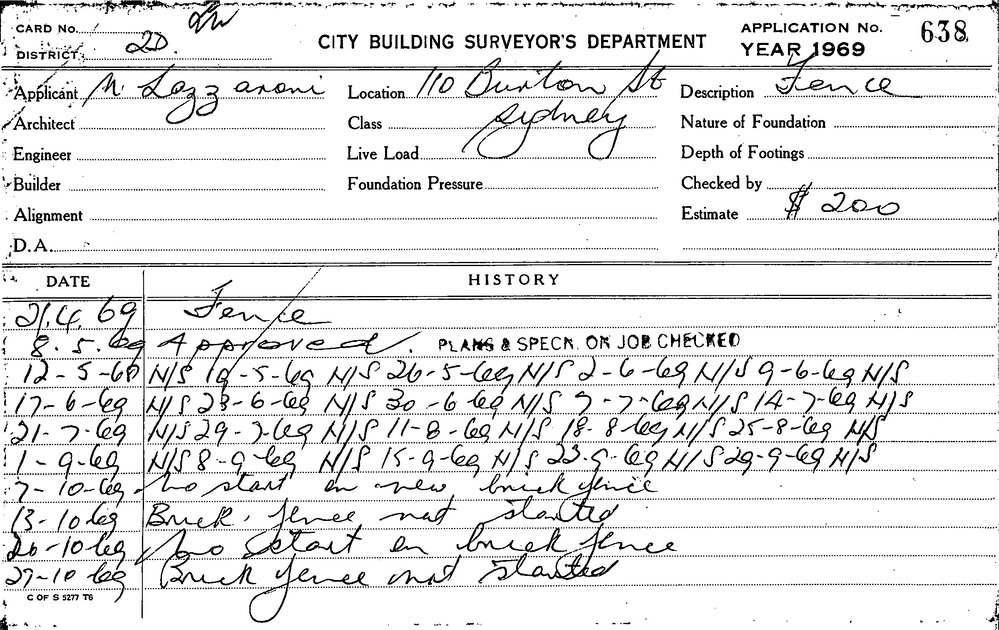 CARD No.
DISTRICT 2D.
CITY BUILDING SURVEYOR'S DEPARTMENT
APPLICATION No. 638
YEAR 1969
Applicant N Lazzaroni Location 110 Burton St Description Fence
Architect Class Sydney Nature of Foundation
Engineer Live Load Depth of Footings
Builder Foundation Pressure Checked by
Alignment Estimate $ 200
D.A.
DATE HISTORY
21.4.69 Fence
8.5.69 Approved. PLANS & SPECN. ON JOB CHECKED
12-5-69 N/S 19-5-69 N/S 26-5-69 N/S 2-6-69 N/S 9-6-69 N/S
17-6-69 N/S 23-6-69 N/S 30-6-69 N/S 7-7-69 N/S 14-7-69 N/S
21-7-69 N/S 29-7-69 N/S 11-8-69 N/S 18-8-69 N/S 25-8-69 N/S
1-9-69 N/S 8-9-69 N/S 15-9-69 N/S 22-9-69 N/S 29-9-69 N/S
7-10-69 No start on new brick fence
13-10-69 Brick fence not started
20-10-69 No start on brick fence
27-10-69 Brick fence not started
C OF S 5277 T6